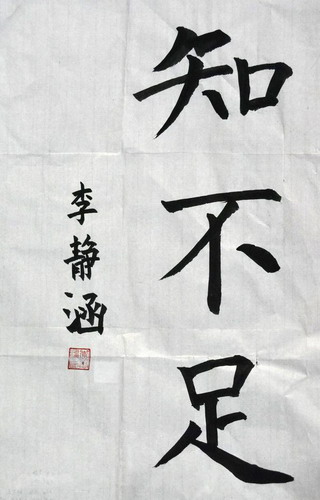 知不足
李静涵